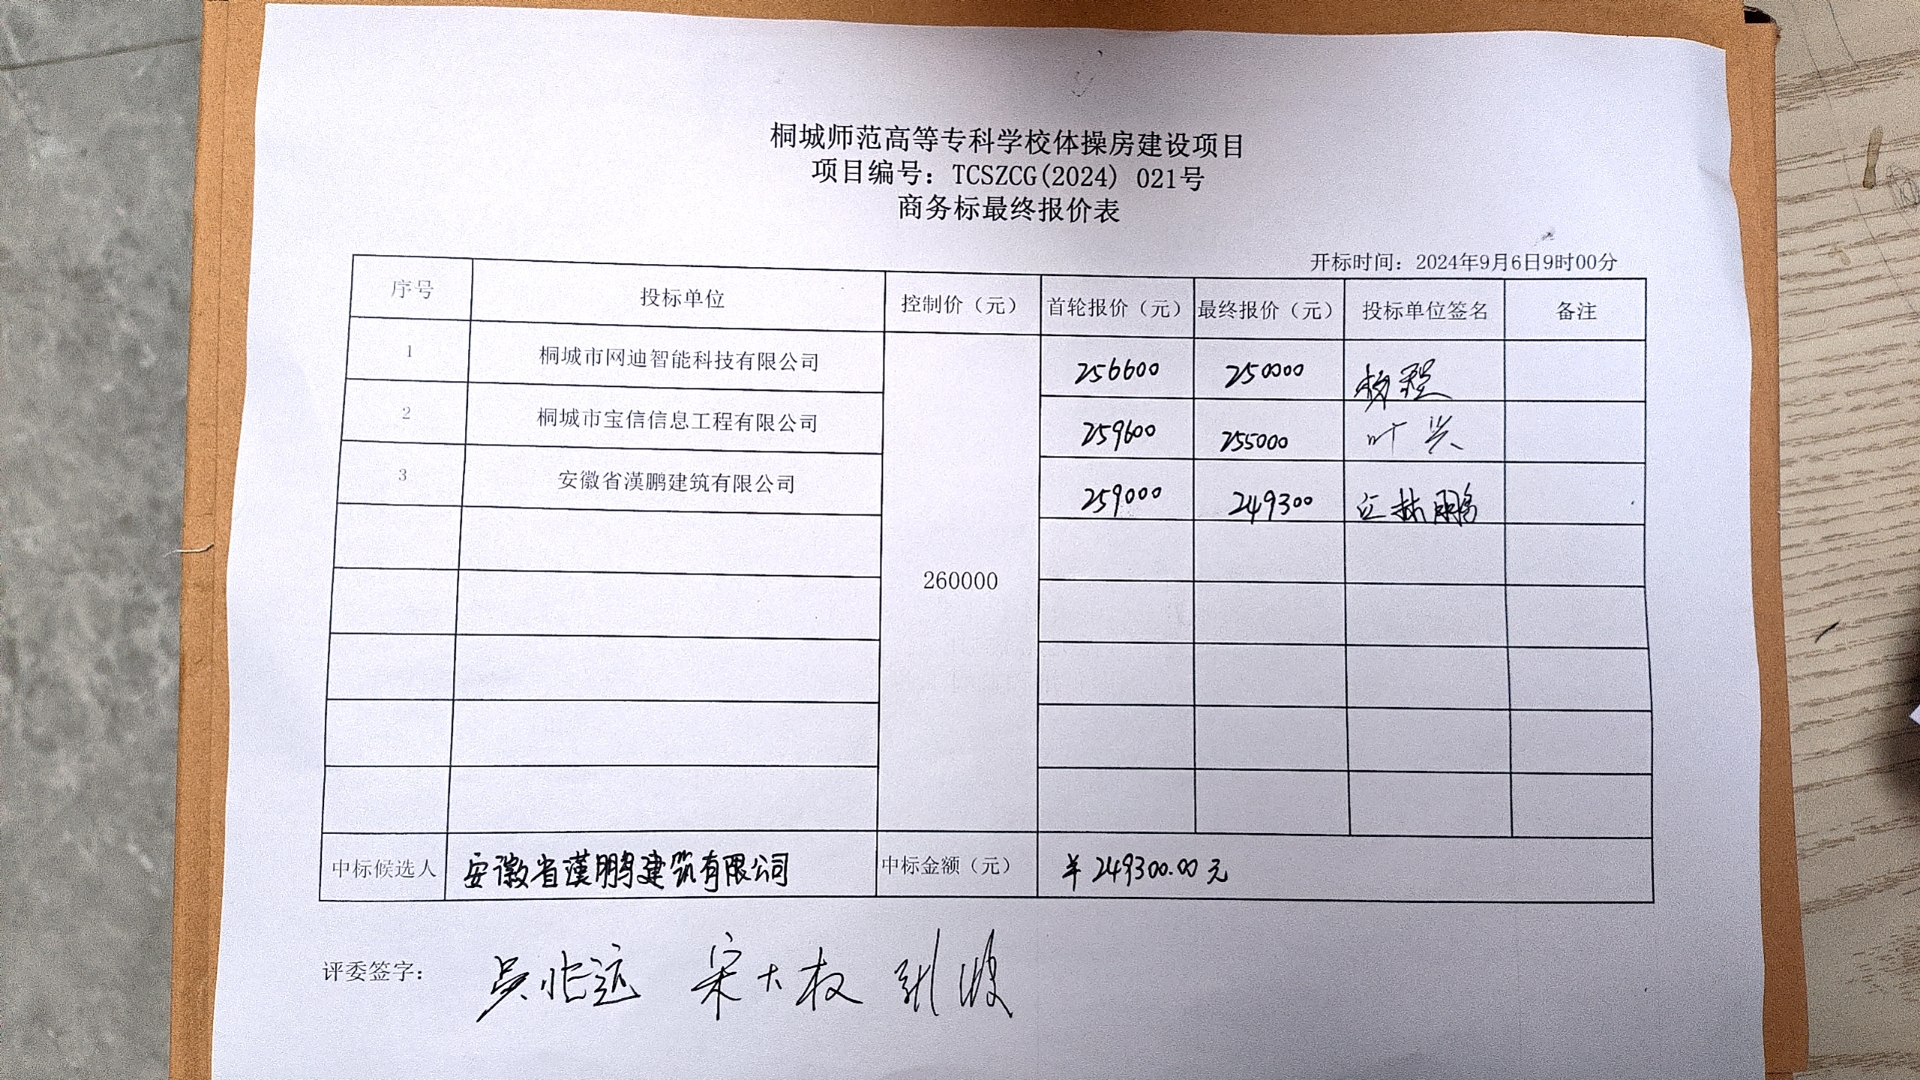 桐城师范高等专科学校体操房建设项目
项目编号：TCSZCG(2024) 021号
商务标最终报价表
开标时间：2024年9月6日9时00分
序号 投标单位 控制价（元） 首轮报价（元） 最终报价（元） 投标单位签名 备注
1 桐城市网迪智能科技有限公司 256600 250000 杨程
2 桐城市宝信信息工程有限公司 259600 255000 叶兴
3 安徽省漢鹏建筑有限公司 259000 249300 鹏
260000
中标候选人 安徽省漢鹏建筑有限公司 中标金额（元） ¥249300.00元
评委签字： 宋大权